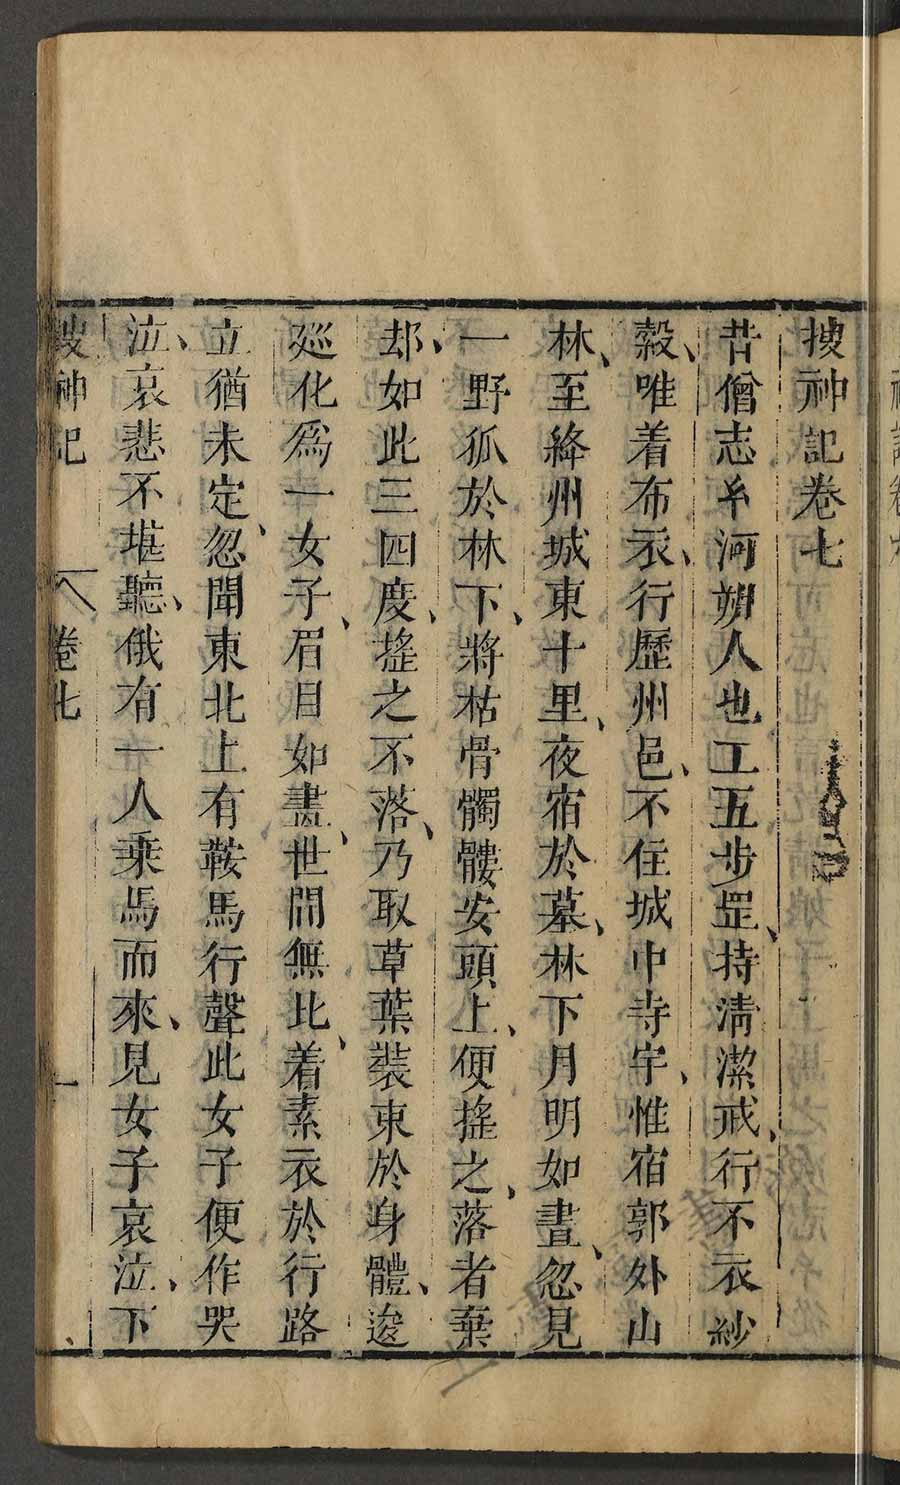 搜神記卷七
昔僧志𤣥河朔人也工五步罡、持清潔戒、行不衣紗
縠、唯着布衣、行歷州邑、不住城中寺宇、惟宿郭外山
林、至絳州城東十里、夜宿於墓、林下月明如晝、忽見
一野狐於林下、將枯骨髑髏安頭上、便搖之、落者棄
却、如此三四度、搖之不落、乃取草葉裝束於身體、逡
廵化爲一女子、眉目如畫、世間無比、着素衣於行路
立猶未定、忽聞東北上有鞍馬行聲此女子便作哭
泣、哀悲不堪聽、俄有一人乘馬而來、見女子哀泣、下
搜神記 卷七 一